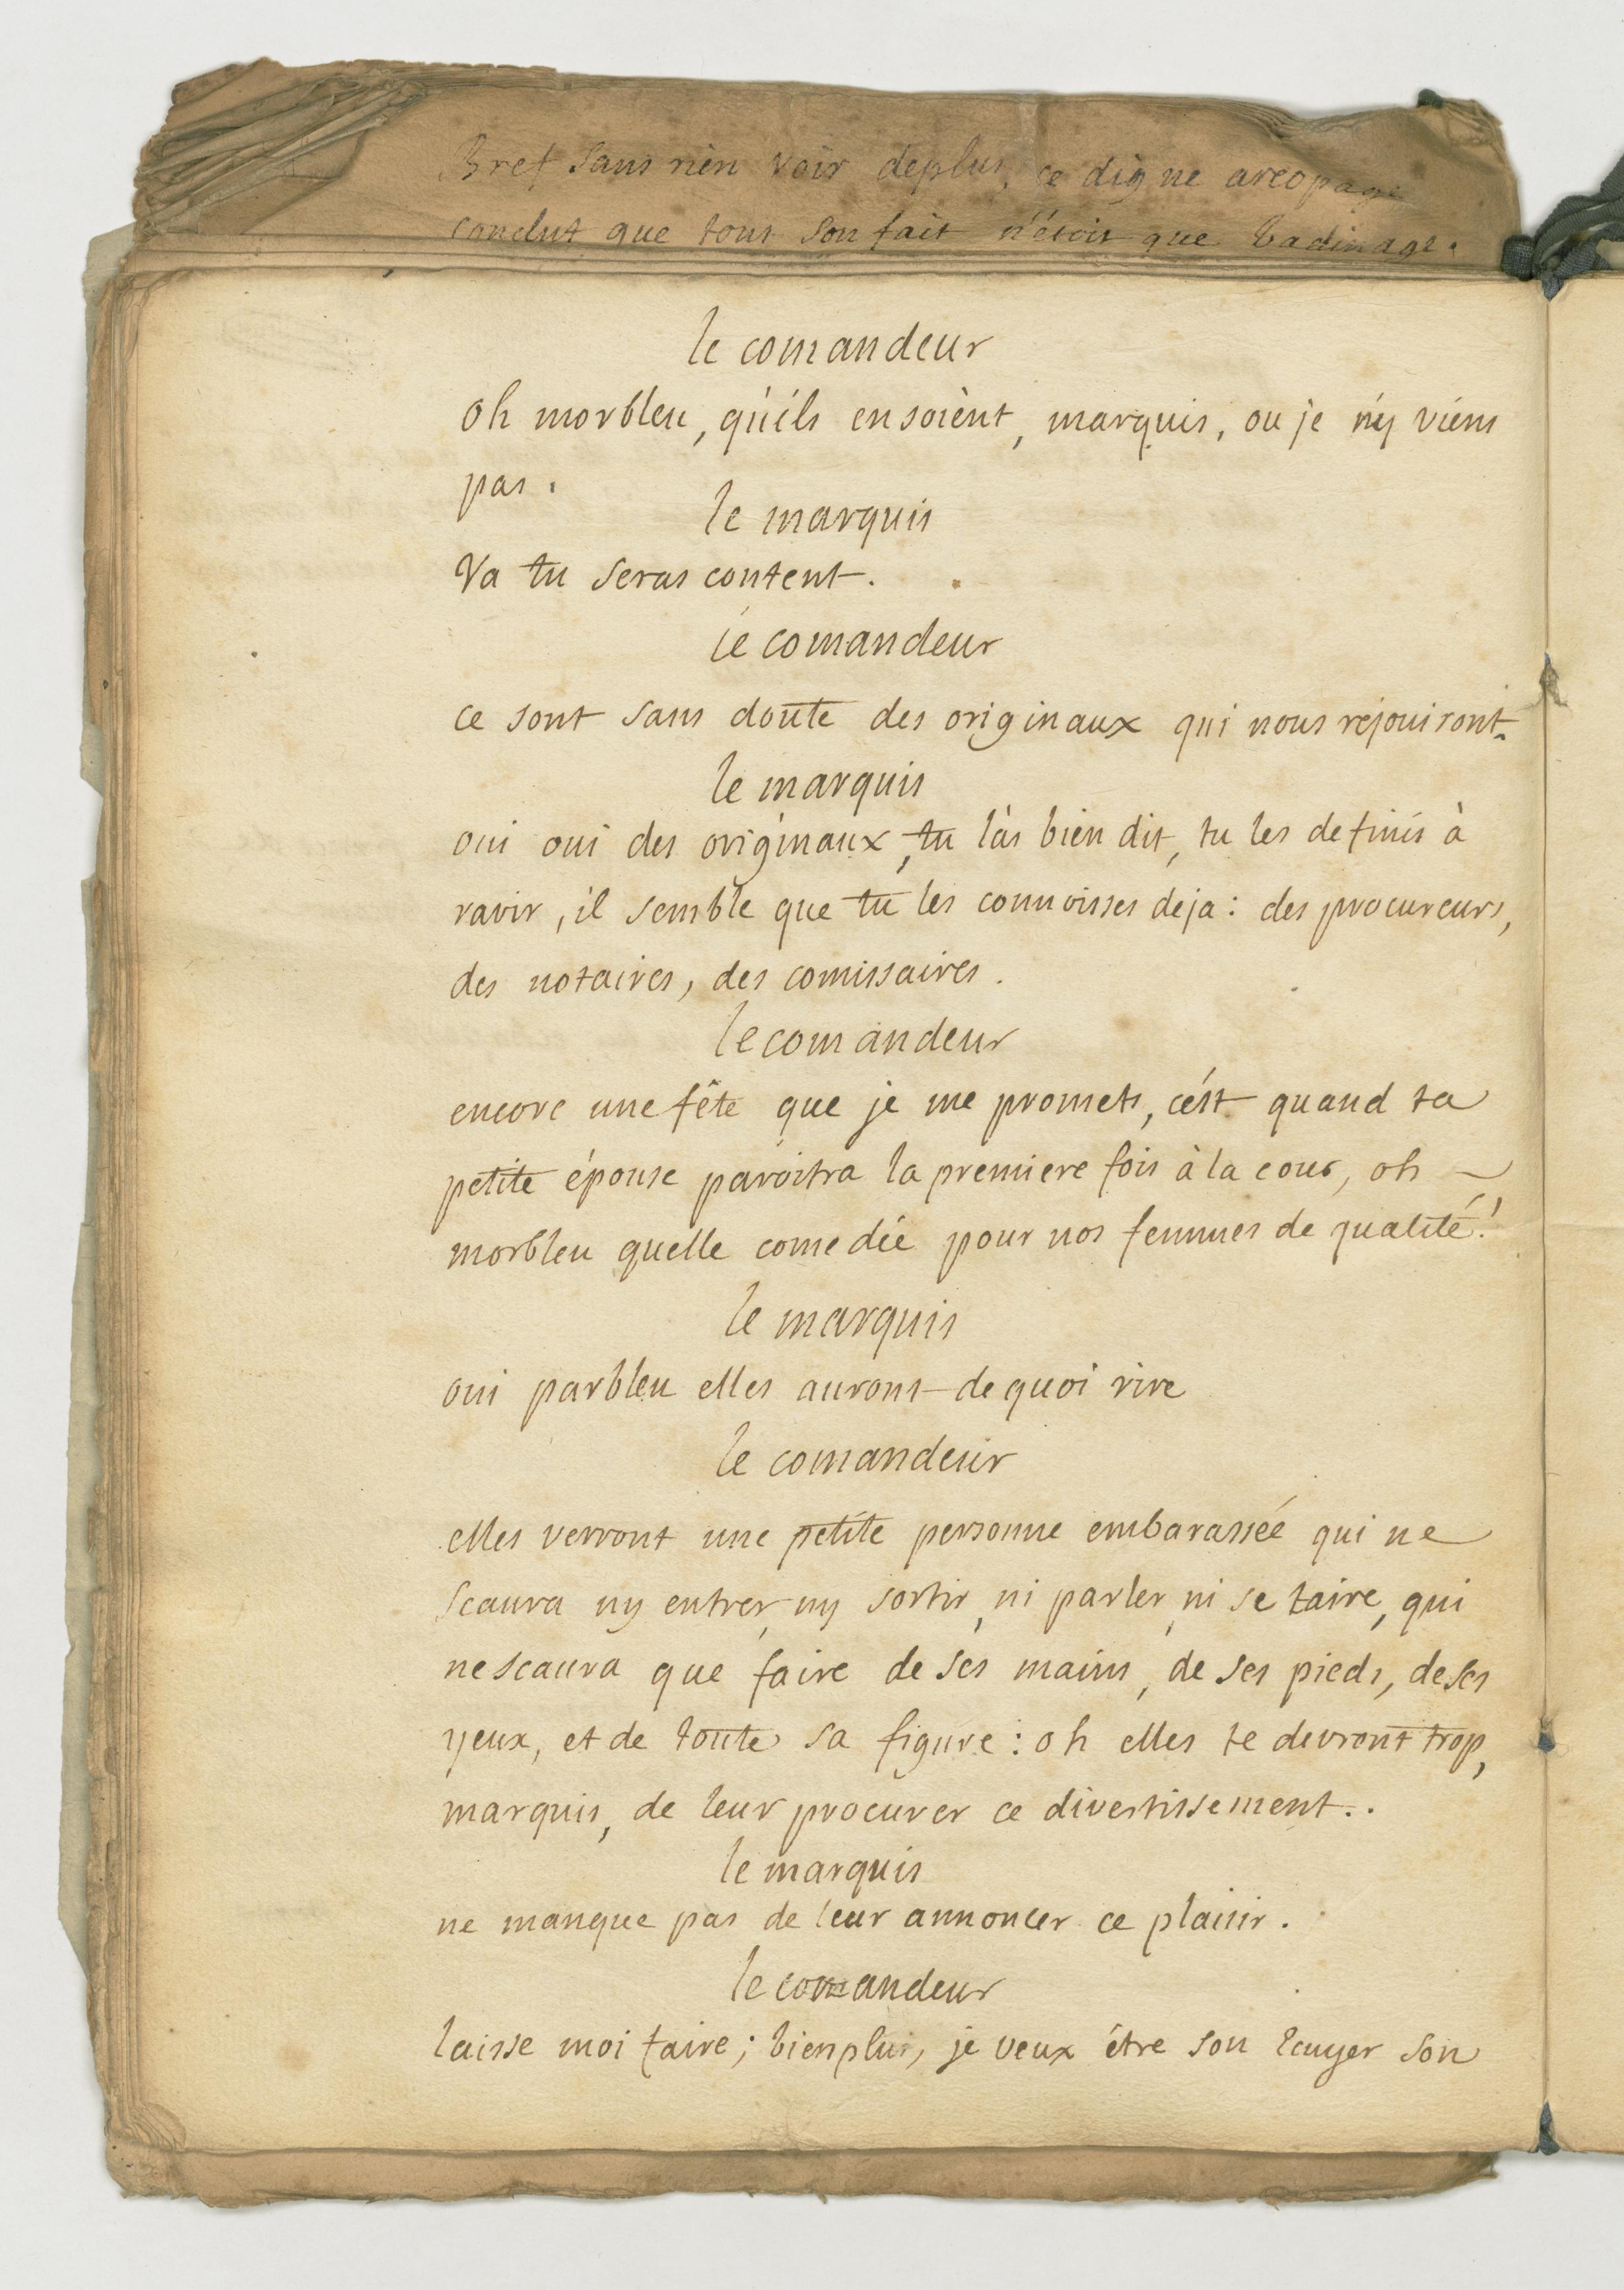 Bref sans rien voir deplus, ce digne areopage
conclut que tout son fait n'étoit que badinage.
le comandeur
oh morbleu, qu'ils en soient, marquis, ou je n'y viens
pas.
le marquis
Va tu seras content.
le comandeur
ce sont sans doute des originaux qui nous rejouiront.
le marquis
oui oui des originaux, tu l'as bien dit, tu les definis à
ravir, il semble que tu les connoisses deja: des procureurs,
des notaires, des comissaires.
le comandeur
encore une fête que je me promets, c'est quand ta
petite épouse paroitra la premiere fois à la cour, oh
morbleu quelle comedie pour nos femmes de qualité!
le marquis
oui parbleu elles auront de quoi rire
le comandeur
elles verront une petite personne embarassée qui ne
scaura ny entrer, ny sortir, ni parler, ni se taire, qui
ne scaura que faire de ses mains, de ses pieds, de ses
yeux, et de toute sa figure: oh elles te devront trop,
marquis, de leur procurer ce divertissement..
le marquis
ne manque pas de leur annoncer ce plaisir.
le comandeur
laisse moi faire; bien plus, je veux être son Ecuyer son